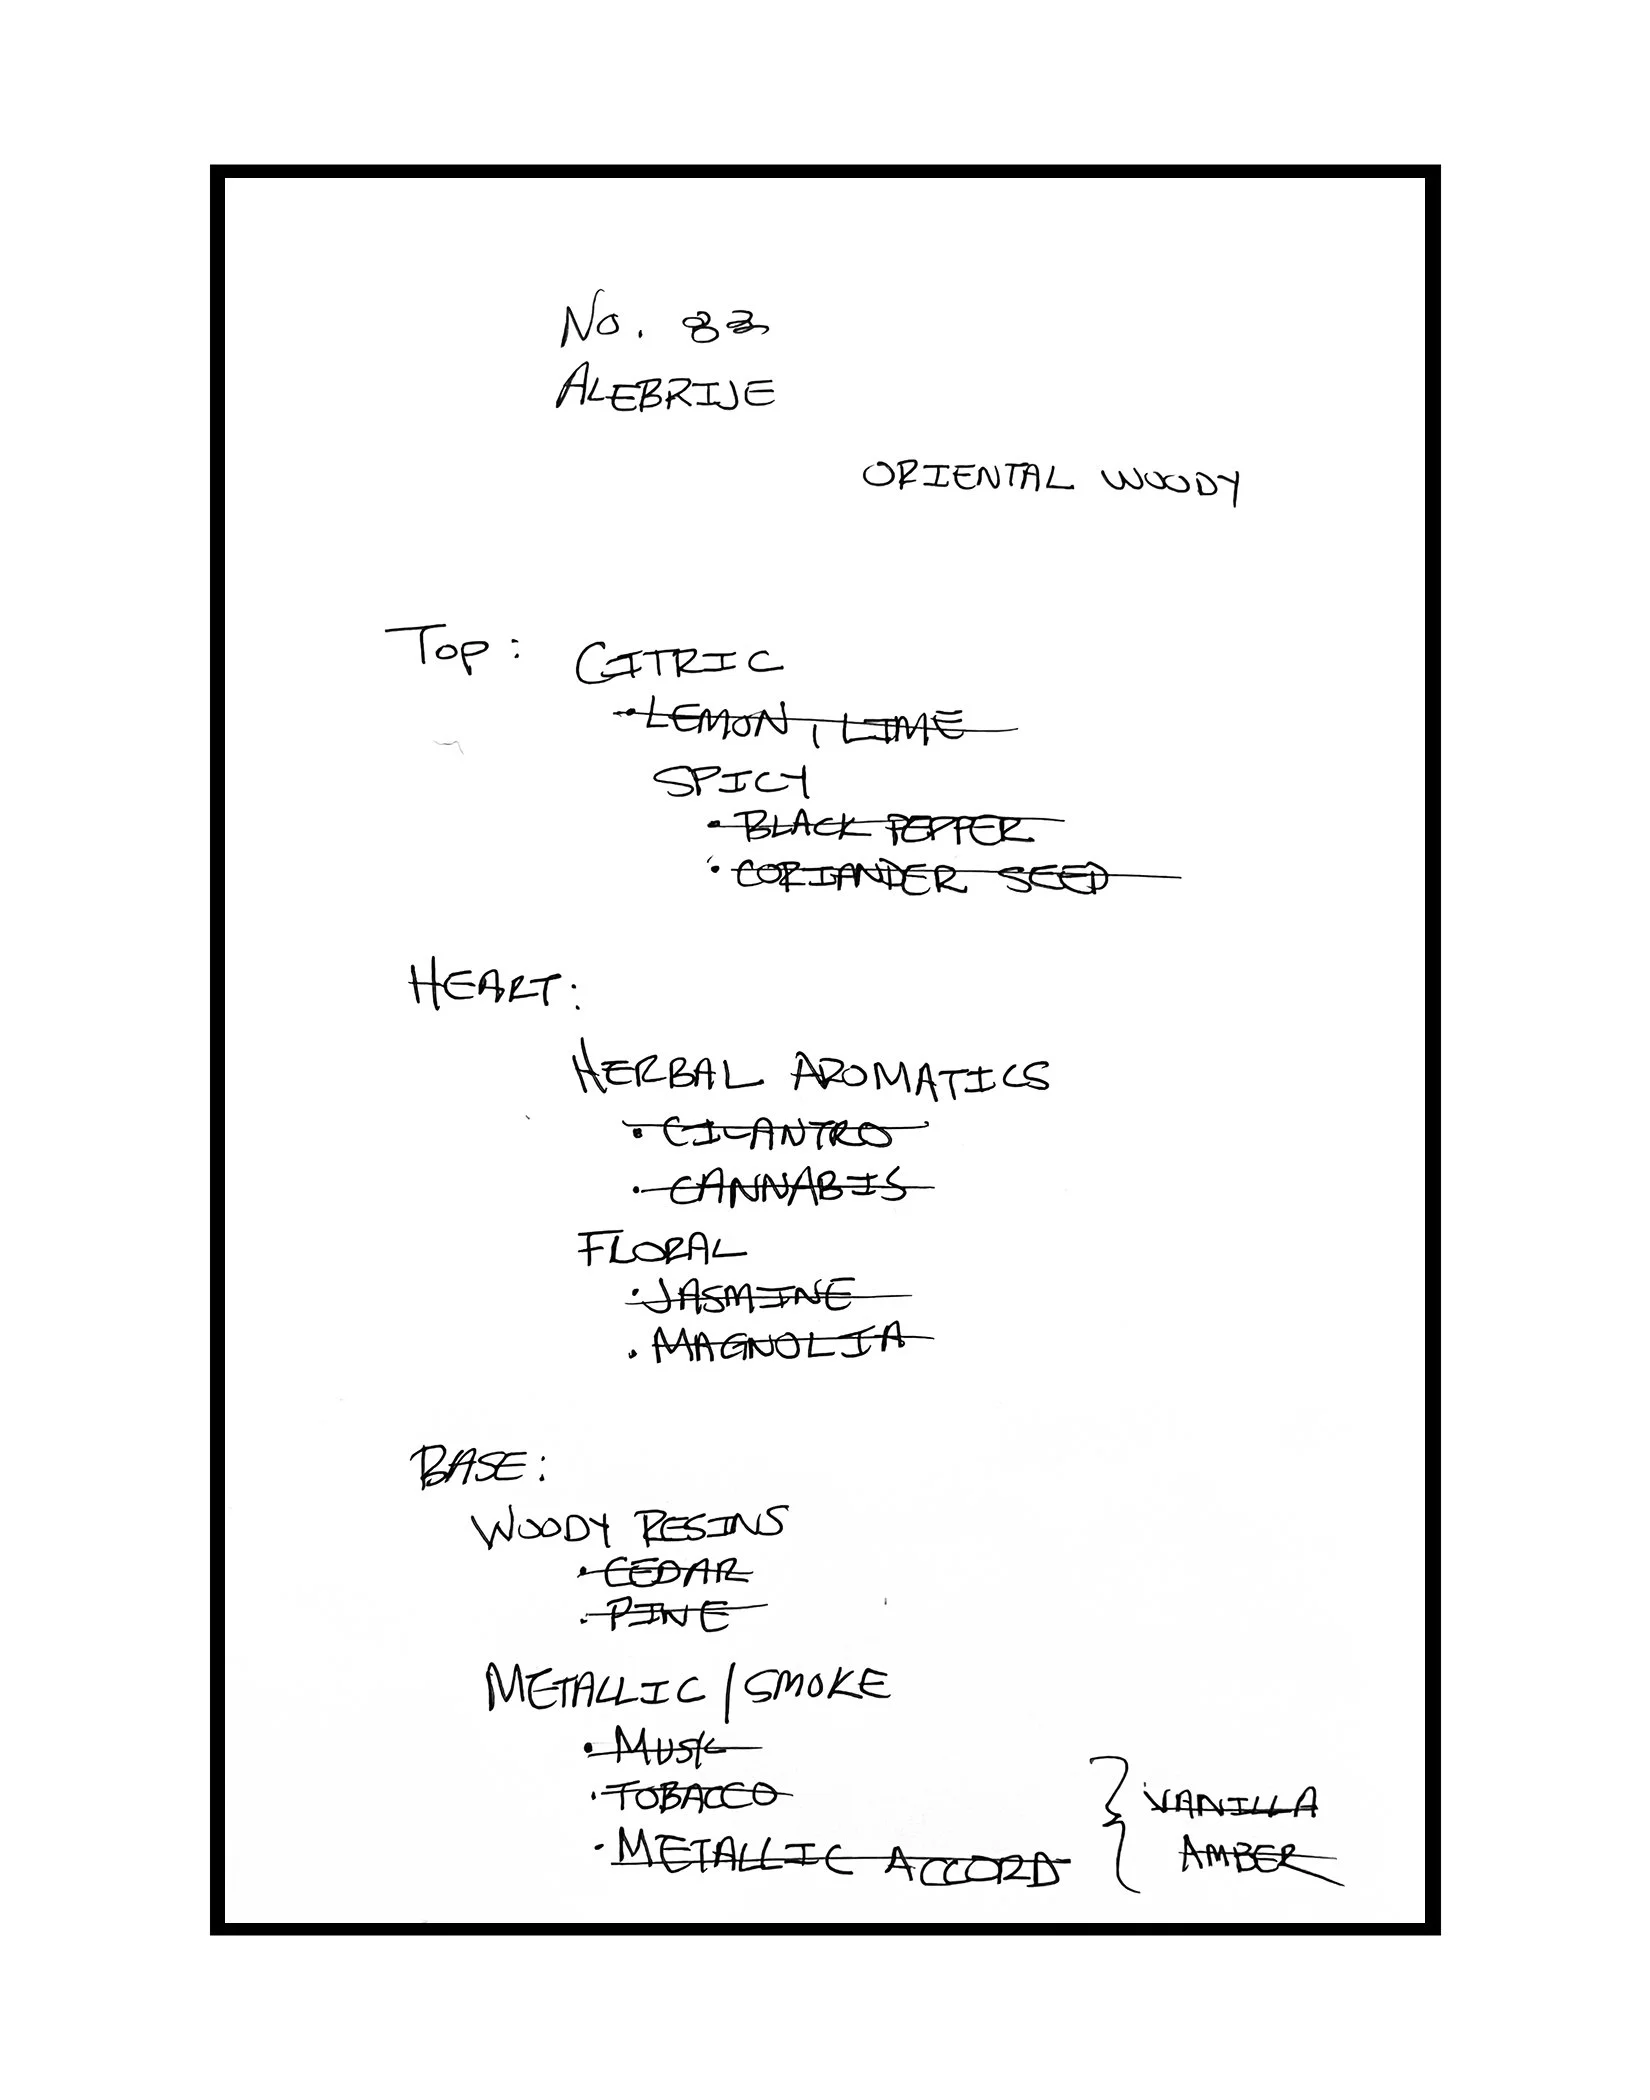 No. 83
ALEBRIJE
ORIENTAL WOODY
TOP: CITRIC
• LEMON, LIME
SPICY
• BLACK PEPPER
• CORIANDER SEED
HEART:
HERBAL AROMATICS
• CILANTRO
• CANNABIS
FLORAL
• JASMINE
• MAGNOLIA
BASE:
WOODY RESINS
• CEDAR
• PINE
METALLIC/SMOKE
• MUSK
• TOBACCO
• METALLIC ACCORD } VANILLA
AMBER